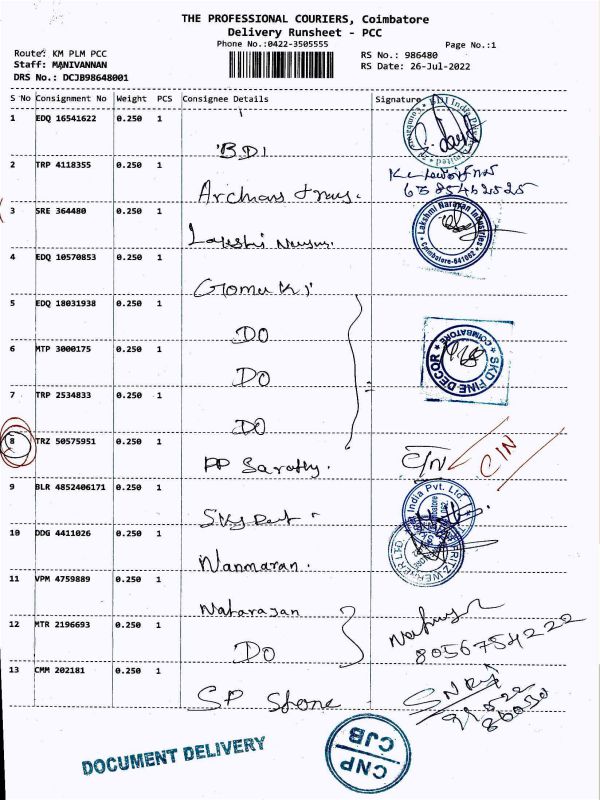 THE PROFESSIONAL COURIERS, Coimbatore
Delivery Runsheet - PCC
Phone No.:0422-3505555
Page No.:1
Route: KM PLM PCC
RS No.: 986480
Staff: MANIVANNAN
RS Date: 26-Jul-2022
DRS No.: DCJB98648001
S No Consignment No Weight PCS Consignee Details Signature
1 EDQ 16541622 0.250 1
BDI
2 TRP 4118355 0.250 1
6385462525
3 SRE 364480 0.250 1
Lakshmi Narayan Industries
Coimbatore-641062
4 EDQ 10570853 0.250 1
Gomuki
5 EDQ 18031938 0.250 1
DO
6 MTP 3000175 0.250 1
DO
SKD FINE DECOR * COIMBATORE *
7 TRP 2534833 0.250 1
DO
8 TRZ 50575951 0.250 1
PP Sarathy. C/N C/N
9 BLR 4852406171 0.250 1
India Pvt. Ltd.
10 DDG 4411026 0.250 1
Nanmaran.
11 VPM 4759889 0.250 1
Natarajan
12 MTR 2196693 0.250 1
DO
8056754222
13 CMM 202181 0.250 1
SP Stone
DOCUMENT DELIVERY
CNP
CJB